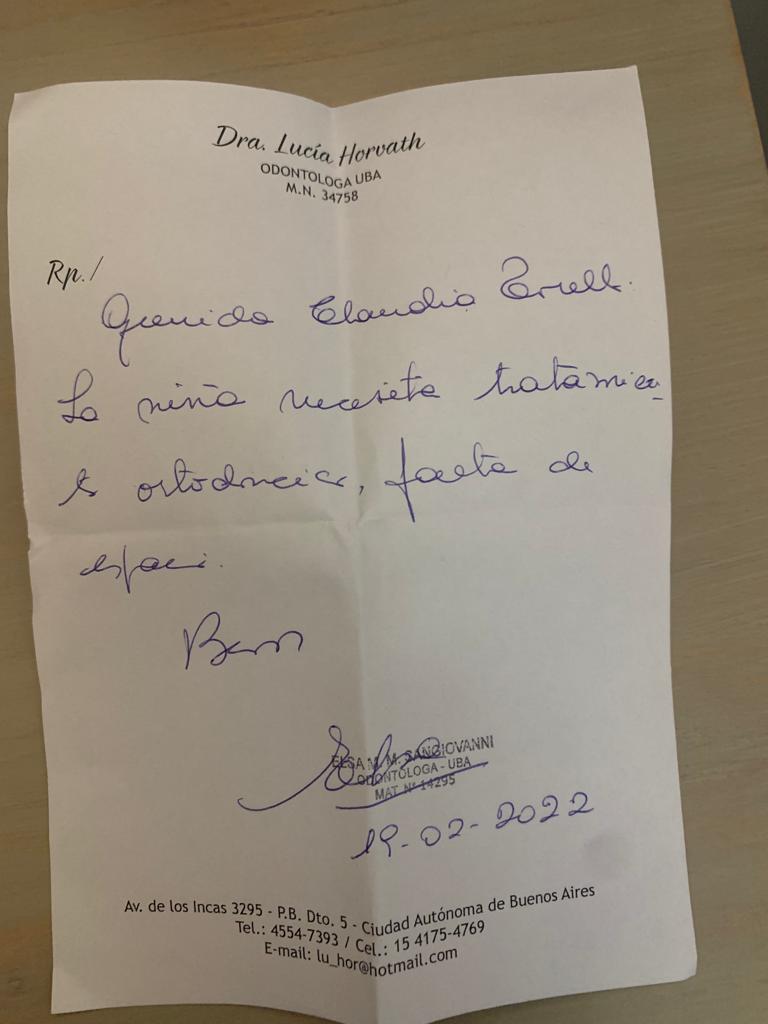 Dra. Lucía Horvath
ODONTOLOGA UBA
M.N. 34758
Rp./
Querida Claudia
La niña necesita tratamien
to ortodoncico, falta de
espacio.
ELSA M. M. SANGIOVANNI
ODONTÓLOGA - UBA
MAT. Nº 14295
19-02-2022
Av. de los Incas 3295 - P.B. Dto. 5 - Ciudad Autónoma de Buenos Aires
Tel.: 4554-7393 / Cel.: 15 4175-4769
E-mail: lu_hor@hotmail.com